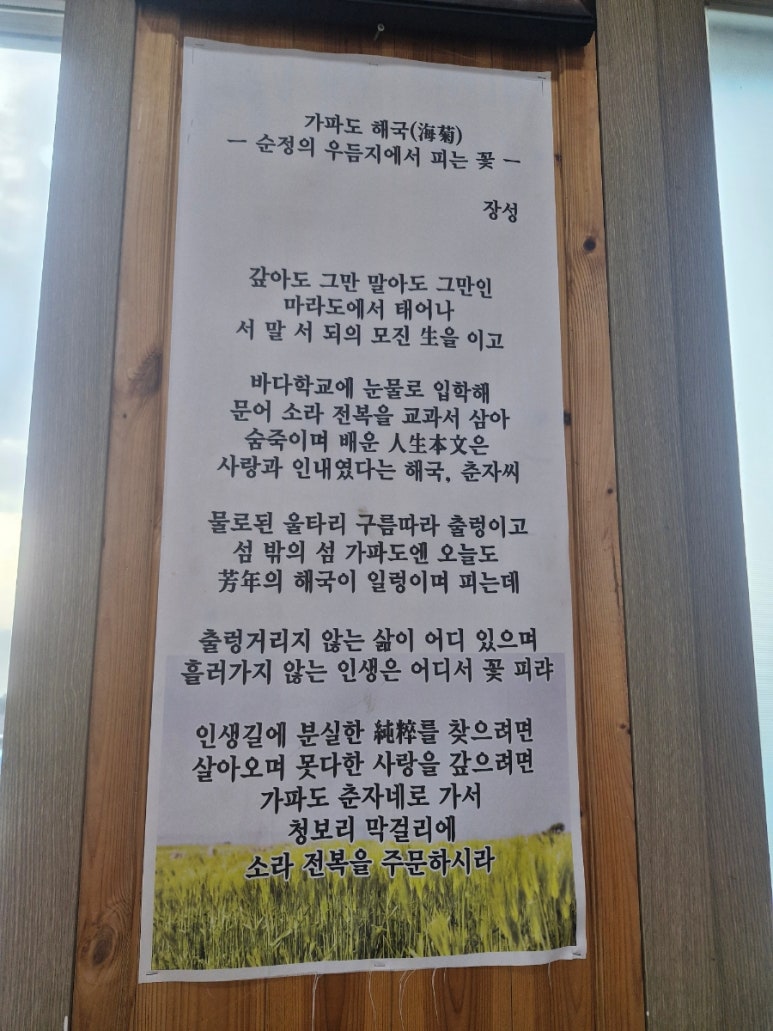 가파도 해국(海菊)
— 순정의 우듬지에서 피는 꽃 —
장성
갚아도 그만 말아도 그만인
마라도에서 태어나
서 말 서 되의 모진 生을 이고
바다학교에 눈물로 입학해
문어 소라 전복을 교과서 삼아
숨죽이며 배운 人生本文은
사랑과 인내였다는 해국, 춘자씨
물로된 울타리 구름따라 출렁이고
섬 밖의 섬 가파도엔 오늘도
芳年의 해국이 일렁이며 피는데
출렁거리지 않는 삶이 어디 있으며
흘러가지 않는 인생은 어디서 꽃 피랴
인생길에 분실한 純粹를 찾으려면
살아오며 못다한 사랑을 갚으려면
가파도 춘자네로 가서
청보리 막걸리에
소라 전복을 주문하시라